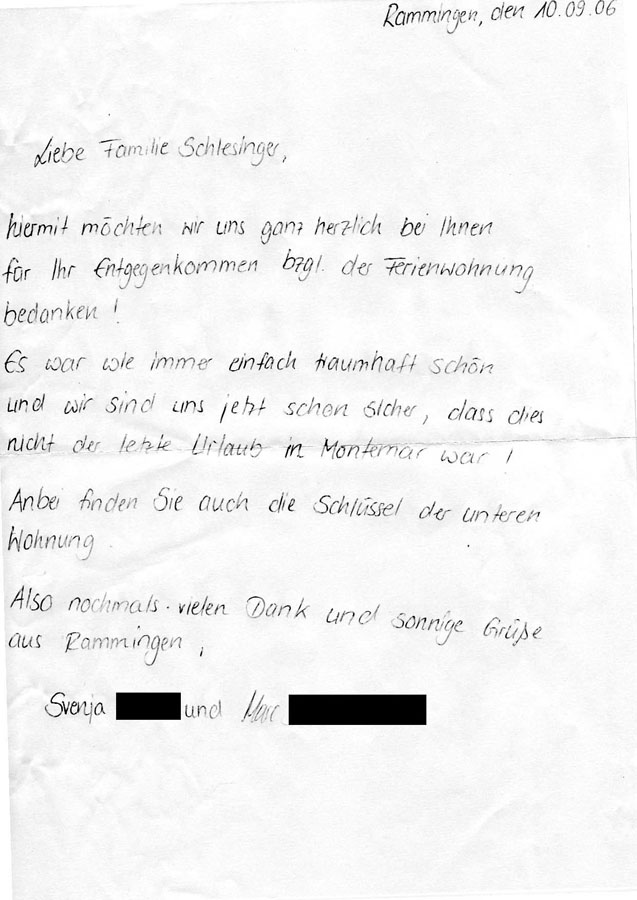 Rammingen, den 10.09.06
Liebe Familie Schlesinger,
hiermit möchten wir uns ganz herzlich bei Ihnen
für Ihr Entgegenkommen bzgl. der Ferienwohnung
bedanken!
Es war wie immer einfach traumhaft schön
und wir sind uns jetzt schon sicher, dass dies
nicht der letzte Urlaub in Montemar war!
Anbei finden Sie auch die Schlüssel der unteren
Wohnung.
Also nochmals vielen Dank und sonnige Grüße
aus Rammingen,
Svenja und Marc